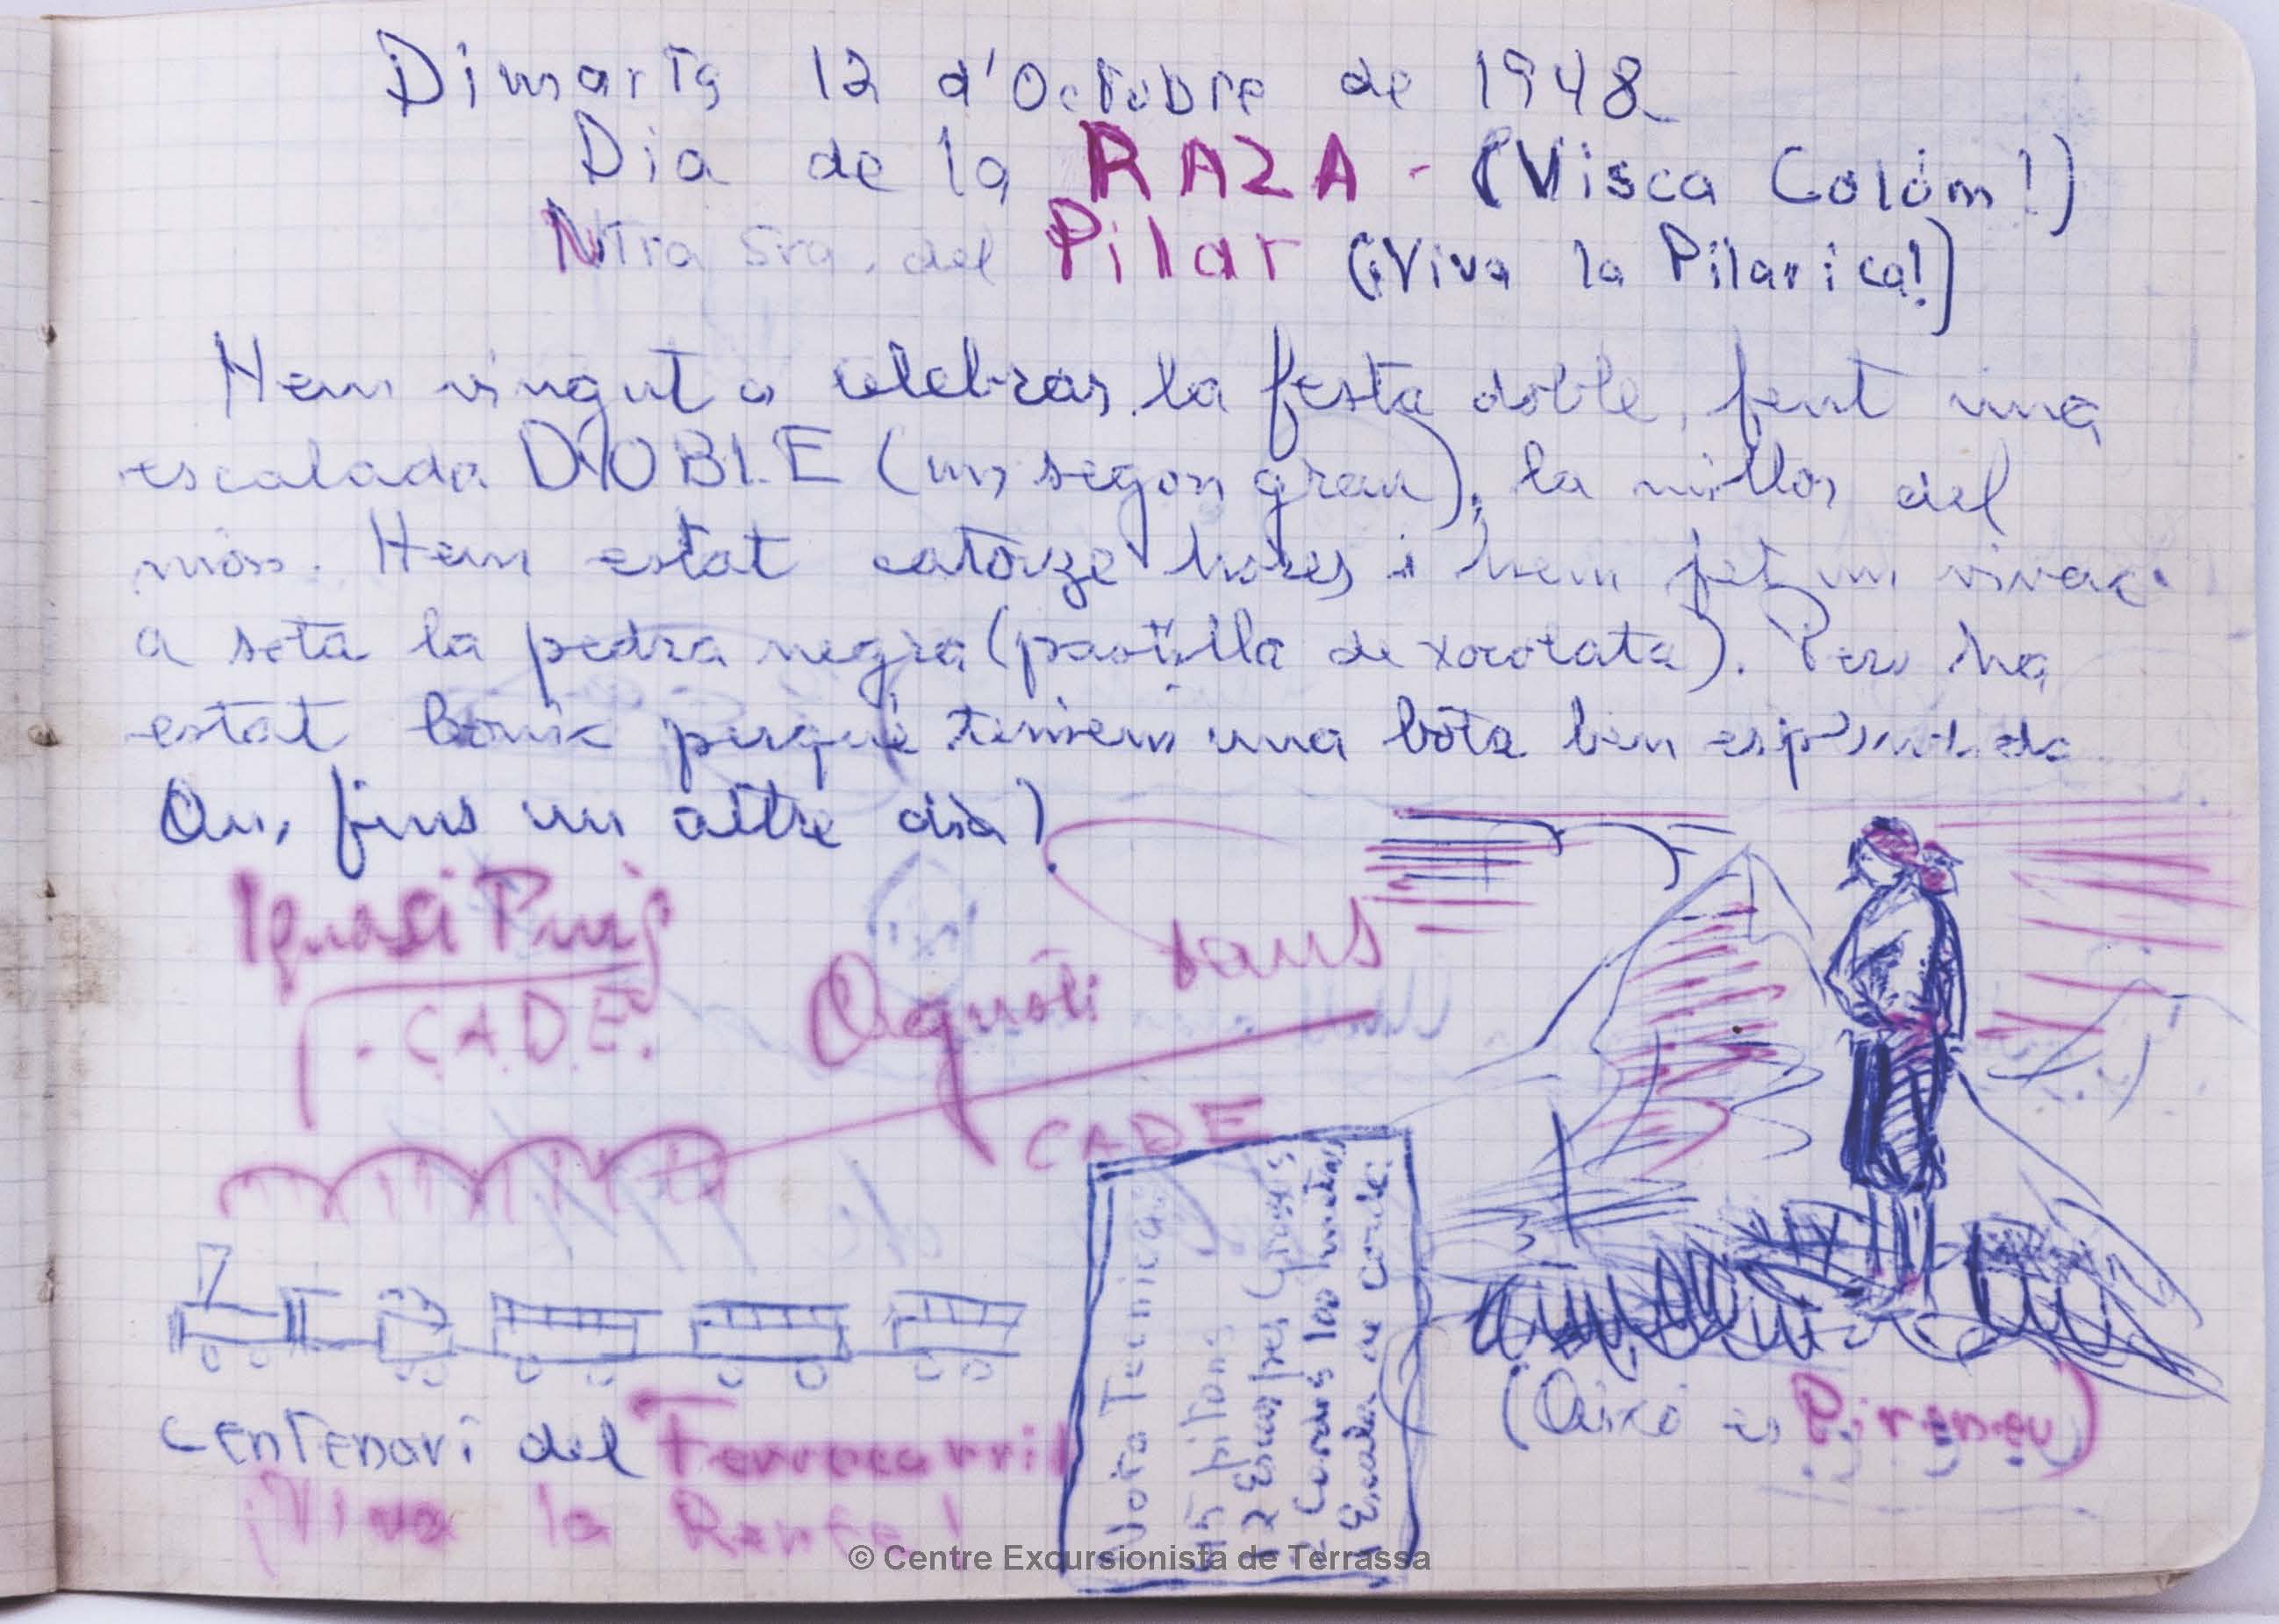 Dimarts 12 d'Octubre de 1948
Dia de la RAZA - (Visca Colóm!)
Ntra Sra. del Pilar (¡Viva la Pilarica!)
Hem vingut a celebrar la festa doble, fent una
escalada DOBLE (un segon grau), la millor del
món. Hem estat catorze hores i hem fet un vivac
a sota la pedra negra (pastilla de xocolata). Pero ha
estat bonic perqué teniem una bota ben
Au, fins un altre dia)
Ignasi Puig
C.A.D.E.
Agustí Faus
CADE
Centenari del Ferrocarril
¡Viva la Renfe!
Nota Tecnica:
45 pitons
12 Escarpes
2 Cordes 100 metres
1 Escala de corda
(Aixo es Pireneu)
© Centre Excursionista de Terrassa